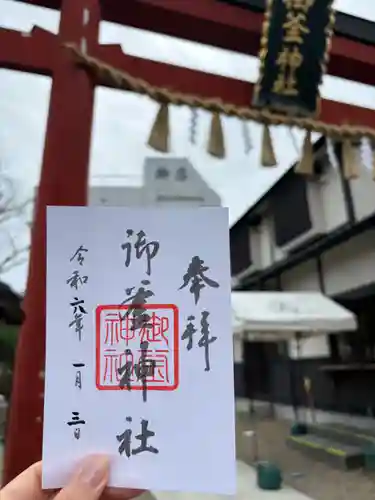 御釜神社
奉拝
御釜神社
令和六年一月三日